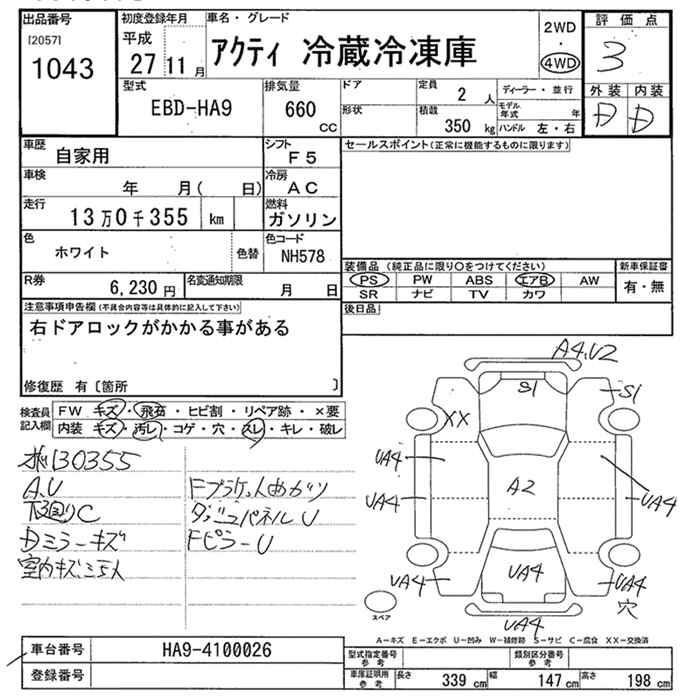 出品番号
[2057]
1043
初度登録年月
平成
27 11 月
車名・グレード
アクティ 冷蔵冷凍庫
2WD
・
4WD
評価点
3
外装 内装
D D
型式
EBD-HA9
排気量
660 cc
ドア
形状
定員
2 人
積載
350 kg
ディーラー・並行
モデル年式 年
ハンドル 左・右
車歴
自家用
シフト
F5
車検
年 月( 日)
冷房
AC
走行
13万0千355 km
燃料
ガソリン
色
ホワイト
色替
色コード
NH578
R券
6,230 円
名変通知期限
月 日
セールスポイント(正常に機能するものに限ります)
装備品 (純正品に限り○をつけてください)
PS PW ABS エアB AW
SR ナビ TV カワ
新車保証書
有・無
後日品
注意事項申告欄(不具合内容等は具体的に記入して下さい)
右ドアロックがかかる事がある
修復歴 有〔箇所 〕
検査員記入欄
FW キズ・飛石・ヒビ割・リペア跡・×要
内装 キズ・汚レ・コゲ・穴・スレ・キレ・破レ
130355
A.U
下廻りC
Dミラーキズ
室内キズ
ダッシュパネルU
FピラーU
A4.U2
S1
S1
XX
UA4
UA4
A2
UA4
UA4
UA4
UA4
穴
UA4
スペア
A-キズ E-エクボ U-凹み W-補修跡 S-サビ C-腐食 XX-交換済
車台番号
HA9-4100026
登録番号
型式指定番号
参考
類別区分番号
参考
車庫証明用
参考
長さ 339 cm 幅 147 cm 高さ 198 cm